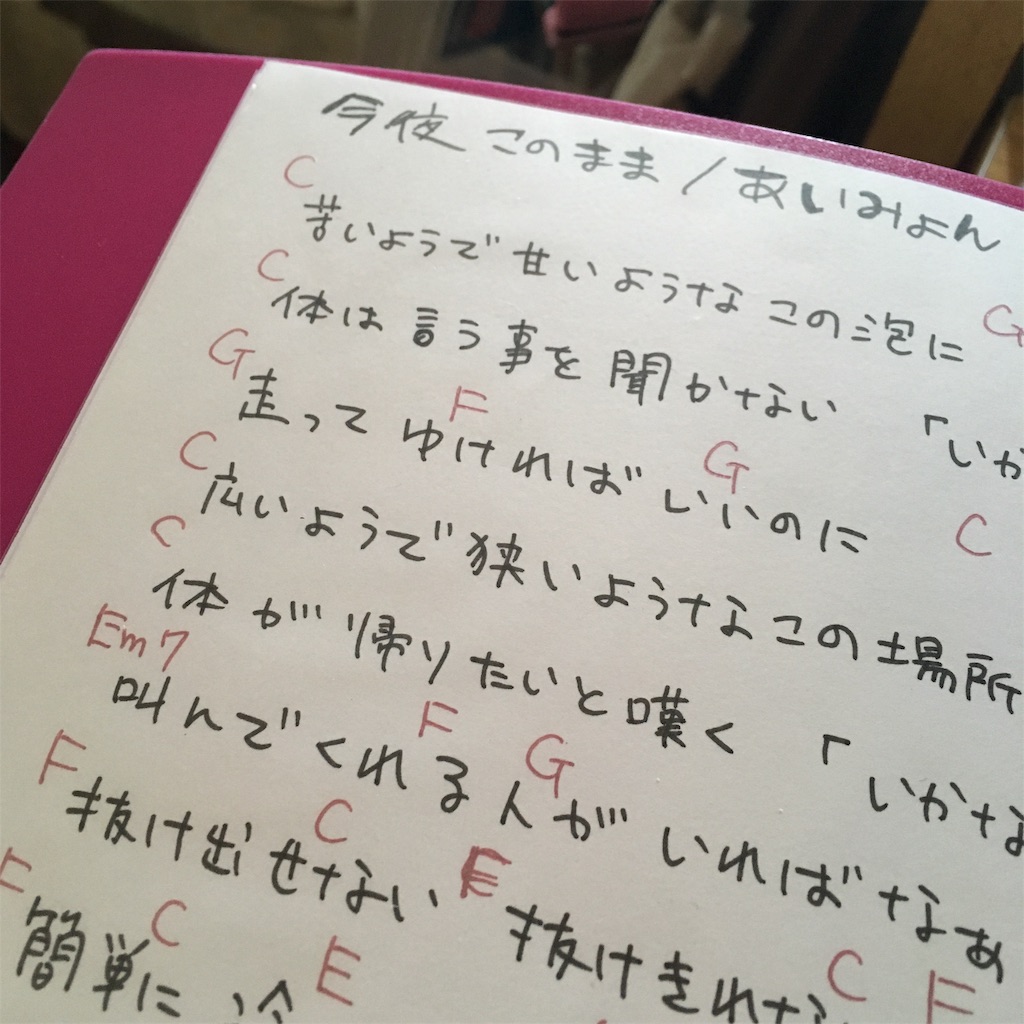 今夜 このまま / あいみょん
C G
苦いようで甘いような この泡に
C
体は 言う事を 聞かない 「いか
G F G
走って ゆければ いいのに
C C
広いようで狭いような この場所
C
体が帰りたいと嘆く 「いかな
Em7 F G
叫んでくれる人が いればなぁ
F C E
抜け出せない 抜けきれな
F C E C F
簡単に 冷